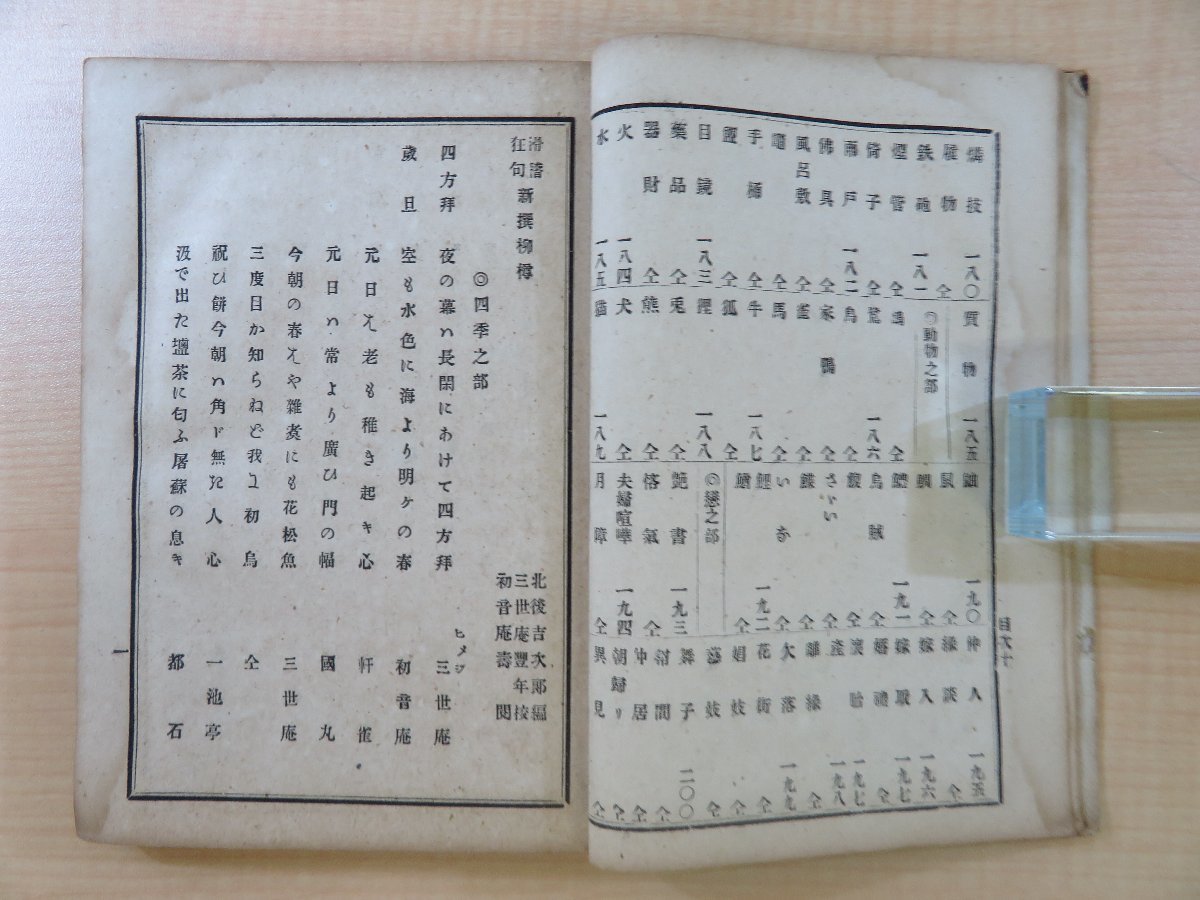 燐枝 一八〇
雁物 仝
鉄砲 一八一
煙管 仝
倚子 仝
雨戸 一八二
佛具 仝
風呂敷 仝
竈 仝
手桶 仝
盥 仝
目鏡 一八三
藥品 仝
器財 仝
火 一八四
水 一八五
質物 一八五
◎動物之部
鶴 仝
鶯 一八六
烏 仝
家鴨 仝
雀 仝
馬 仝
牛 一八七
狐 仝
狸 一八八
兎 仝
熊 仝
犬 仝
猫 一八九
鼬 一九〇
鼠 仝
仝
一九一
烏賊 仝
鰒 仝
さゞい 仝
鰈 仝
いな 仝
鯉 一九二
仝
◎戀之部
艶書 一九三
悋氣 仝
夫婦喧嘩 一九四
月障 仝
仲人 一九五
縁談 仝
嫁入 一九六
嫁取 一九七
婚禮 仝
懐胎 一九七
產 一九八
離縁 仝
欠落 一九九
花街 仝
娼妓 仝
藝妓 仝
舞子 二〇〇
幇間 仝
仲居 仝
朝歸り 仝
異見 仝
目次十
滑稽狂句 新撰柳樽
北後吉次郎編
三世庵豐年校
初音庵壽閲
◎四季之部
四方拜 夜の幕ハ長閑にあけて四方拜 ヒメヂ 三世庵
歲旦 空も水色に海より明ケの春 初音庵
元日は老も稚き起キ心 軒雀
元日ハ常より廣ひ門の幅 國丸
今朝の春はや雜煑にも花松魚 三世庵
三度目か知らねど我は初烏 仝
祝ひ餅今朝ハ角ド無た人心 一池亭
汲で出た壜茶に匂ふ屠蘇の息キ 都石
一